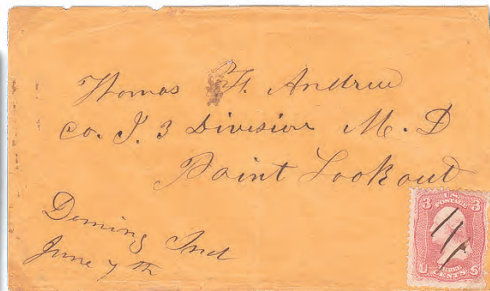 Thomas H. Andrew
Co. I. 3 Division M. D
Point Lookout
Deming Ind
June 7 th
3 U.S. 3
POSTAGE
CENTS
U S